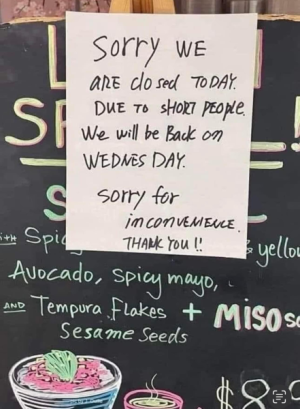 Sorry WE
ARE closed TODAY.
DUE TO SHORT PEOPLE.
We will be Back on
WEDNES DAY.
Sorry for
inconVENIENCE.
THANK YOU !!
L
SP !
S
WITH Spic yellow
Avocado, spicy mayo,
AND Tempura Flakes + MISO so
Sesame Seeds